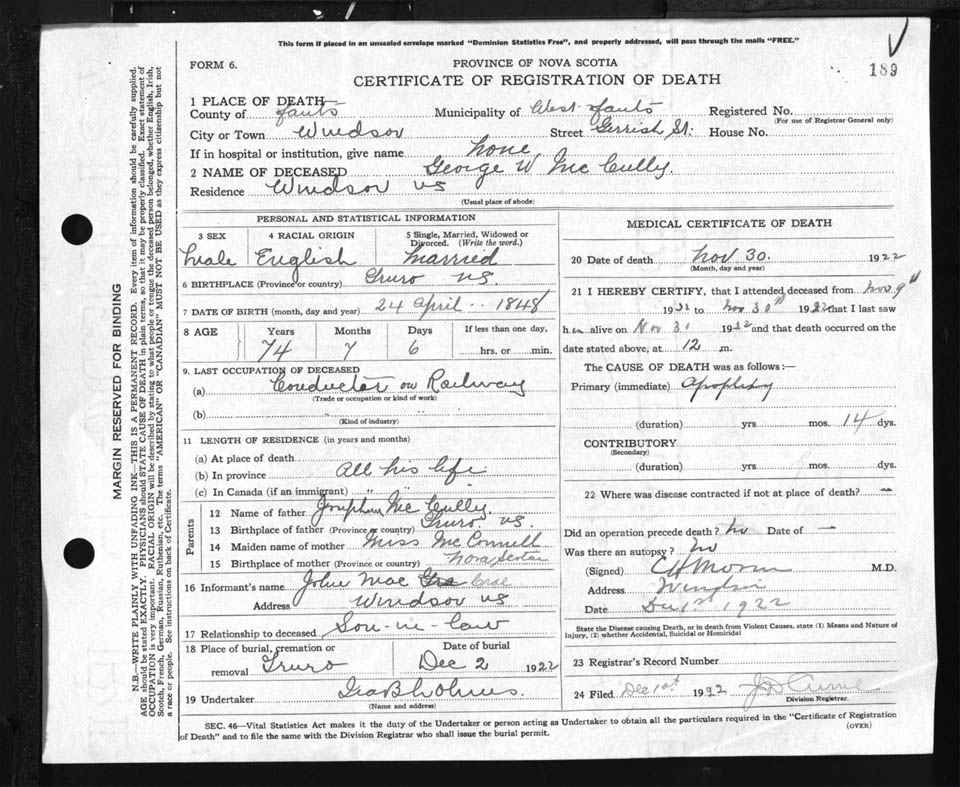 This form if placed in an unsealed envelope marked "Dominion Statistics Free", and properly addressed, will pass through the mails "FREE."
FORM 6.
PROVINCE OF NOVA SCOTIA
189
CERTIFICATE OF REGISTRATION OF DEATH
1 PLACE OF DEATH
County of Hants Municipality of West Hants Registered No.
(For use of Registrar General only)
City or Town Windsor Street Gerrish St. House No.
If in hospital or institution, give name None
2 NAME OF DECEASED George W McCully.
Residence Windsor NS
(Usual place of abode)
PERSONAL AND STATISTICAL INFORMATION
3 SEX 4 RACIAL ORIGIN 5 Single, Married, Widowed or Divorced. (Write the word.)
Male English Married
6 BIRTHPLACE (Province or country) Truro NS.
7 DATE OF BIRTH (month, day and year) 24 April 1848
8 AGE Years Months Days If less than one day,
74 7 6 hrs. or min.
9. LAST OCCUPATION OF DECEASED
(a) Conductor on Railway
(Trade or occupation or kind of work)
(b)
(Kind of industry)
11 LENGTH OF RESIDENCE (in years and months)
(a) At place of death
(b) In province All his life
(c) In Canada (if an immigrant) " "
Parents
12 Name of father McCully.
13 Birthplace of father (Province or country) Truro NS.
14 Maiden name of mother Miss McConnell
15 Birthplace of mother (Province or country) Nova Scotia
16 Informant's name John Mac
Address Windsor NS
17 Relationship to deceased Son-in-law
18 Place of burial, cremation or removal Truro
Date of burial
Dec 2 1922
19 Undertaker Ira B Holmes.
(Name and address)
MEDICAL CERTIFICATE OF DEATH
20 Date of death Nov 30. 1922
(Month, day and year)
21 I HEREBY CERTIFY, that I attended deceased from Nov. 9th
1922 to Nov 30th 1922 that I last saw
h alive on Nov 30 1922 and that death occurred on
date stated above, at 12 m.
The CAUSE OF DEATH was as follows:—
Primary (immediate) Apoplexy
(duration) yrs. mos. 14 dys.
CONTRIBUTORY
(Secondary)
(duration) yrs. mos. dys.
22 Where was disease contracted if not at place of death? —
Did an operation precede death? No Date of —
Was there an autopsy? No
(Signed) M.D.
Address Windsor
Date Dec 1st 1922
State the Disease causing Death, or in death from Violent Causes, state (1) Means and Nature of
Injury, (2) whether Accidental, Suicidal or Homicidal
23 Registrar's Record Number
24 Filed Dec 1st 1922
Division Registrar.
SEC. 46—Vital Statistics Act makes it the duty of the Undertaker or person acting as Undertaker to obtain all the particulars required in the "Certificate of Registration
of Death" and to file the same with the Division Registrar who shall issue the burial permit.
(OVER)
MARGIN RESERVED FOR BINDING
N.B.—WRITE PLAINLY WITH UNFADING INK—THIS IS A PERMANENT RECORD. Every item of information should be carefully supplied.
AGE should be stated EXACTLY. PHYSICIANS should STATE CAUSE OF DEATH in plain terms, so that it may be properly classified. Exact statement of
OCCUPATION is very important. RACIAL ORIGIN will be described by stating to what people or tongue the deceased person belonged, whether English, Irish,
Scotch, French, German, Russian, Ruthenian, etc. The terms "AMERICAN" OR "CANADIAN" MUST NOT BE USED as they express citizenship but not
a race or people. See instructions on back of Certificate.